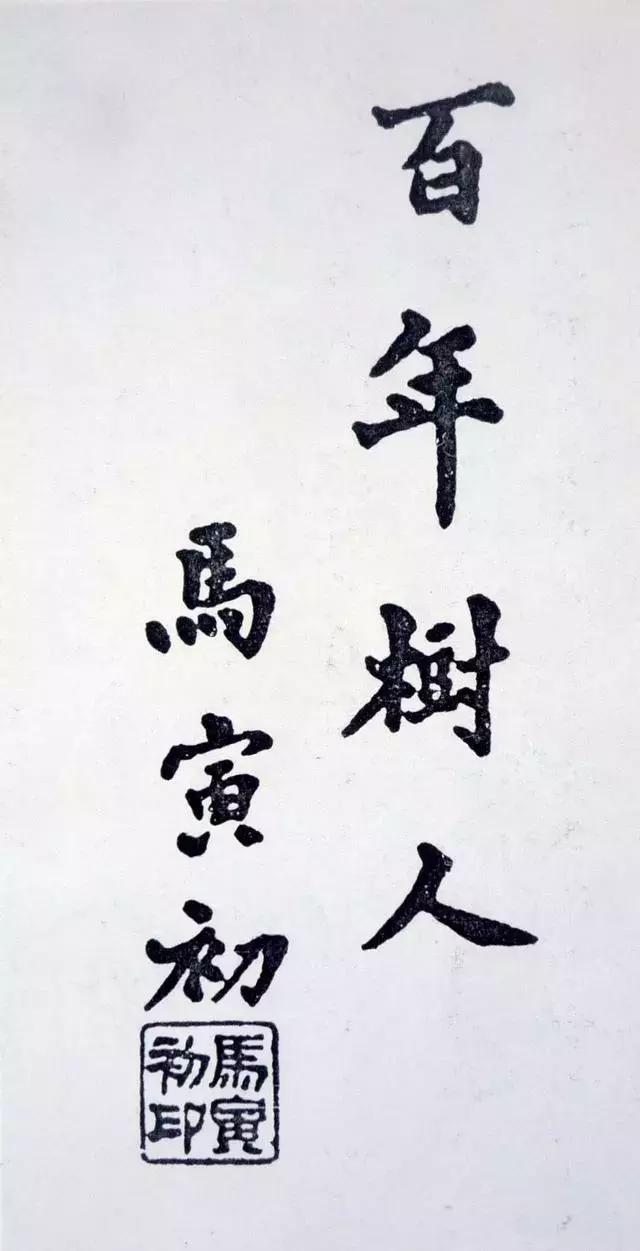 百年樹人
馬寅初
馬寅
初印